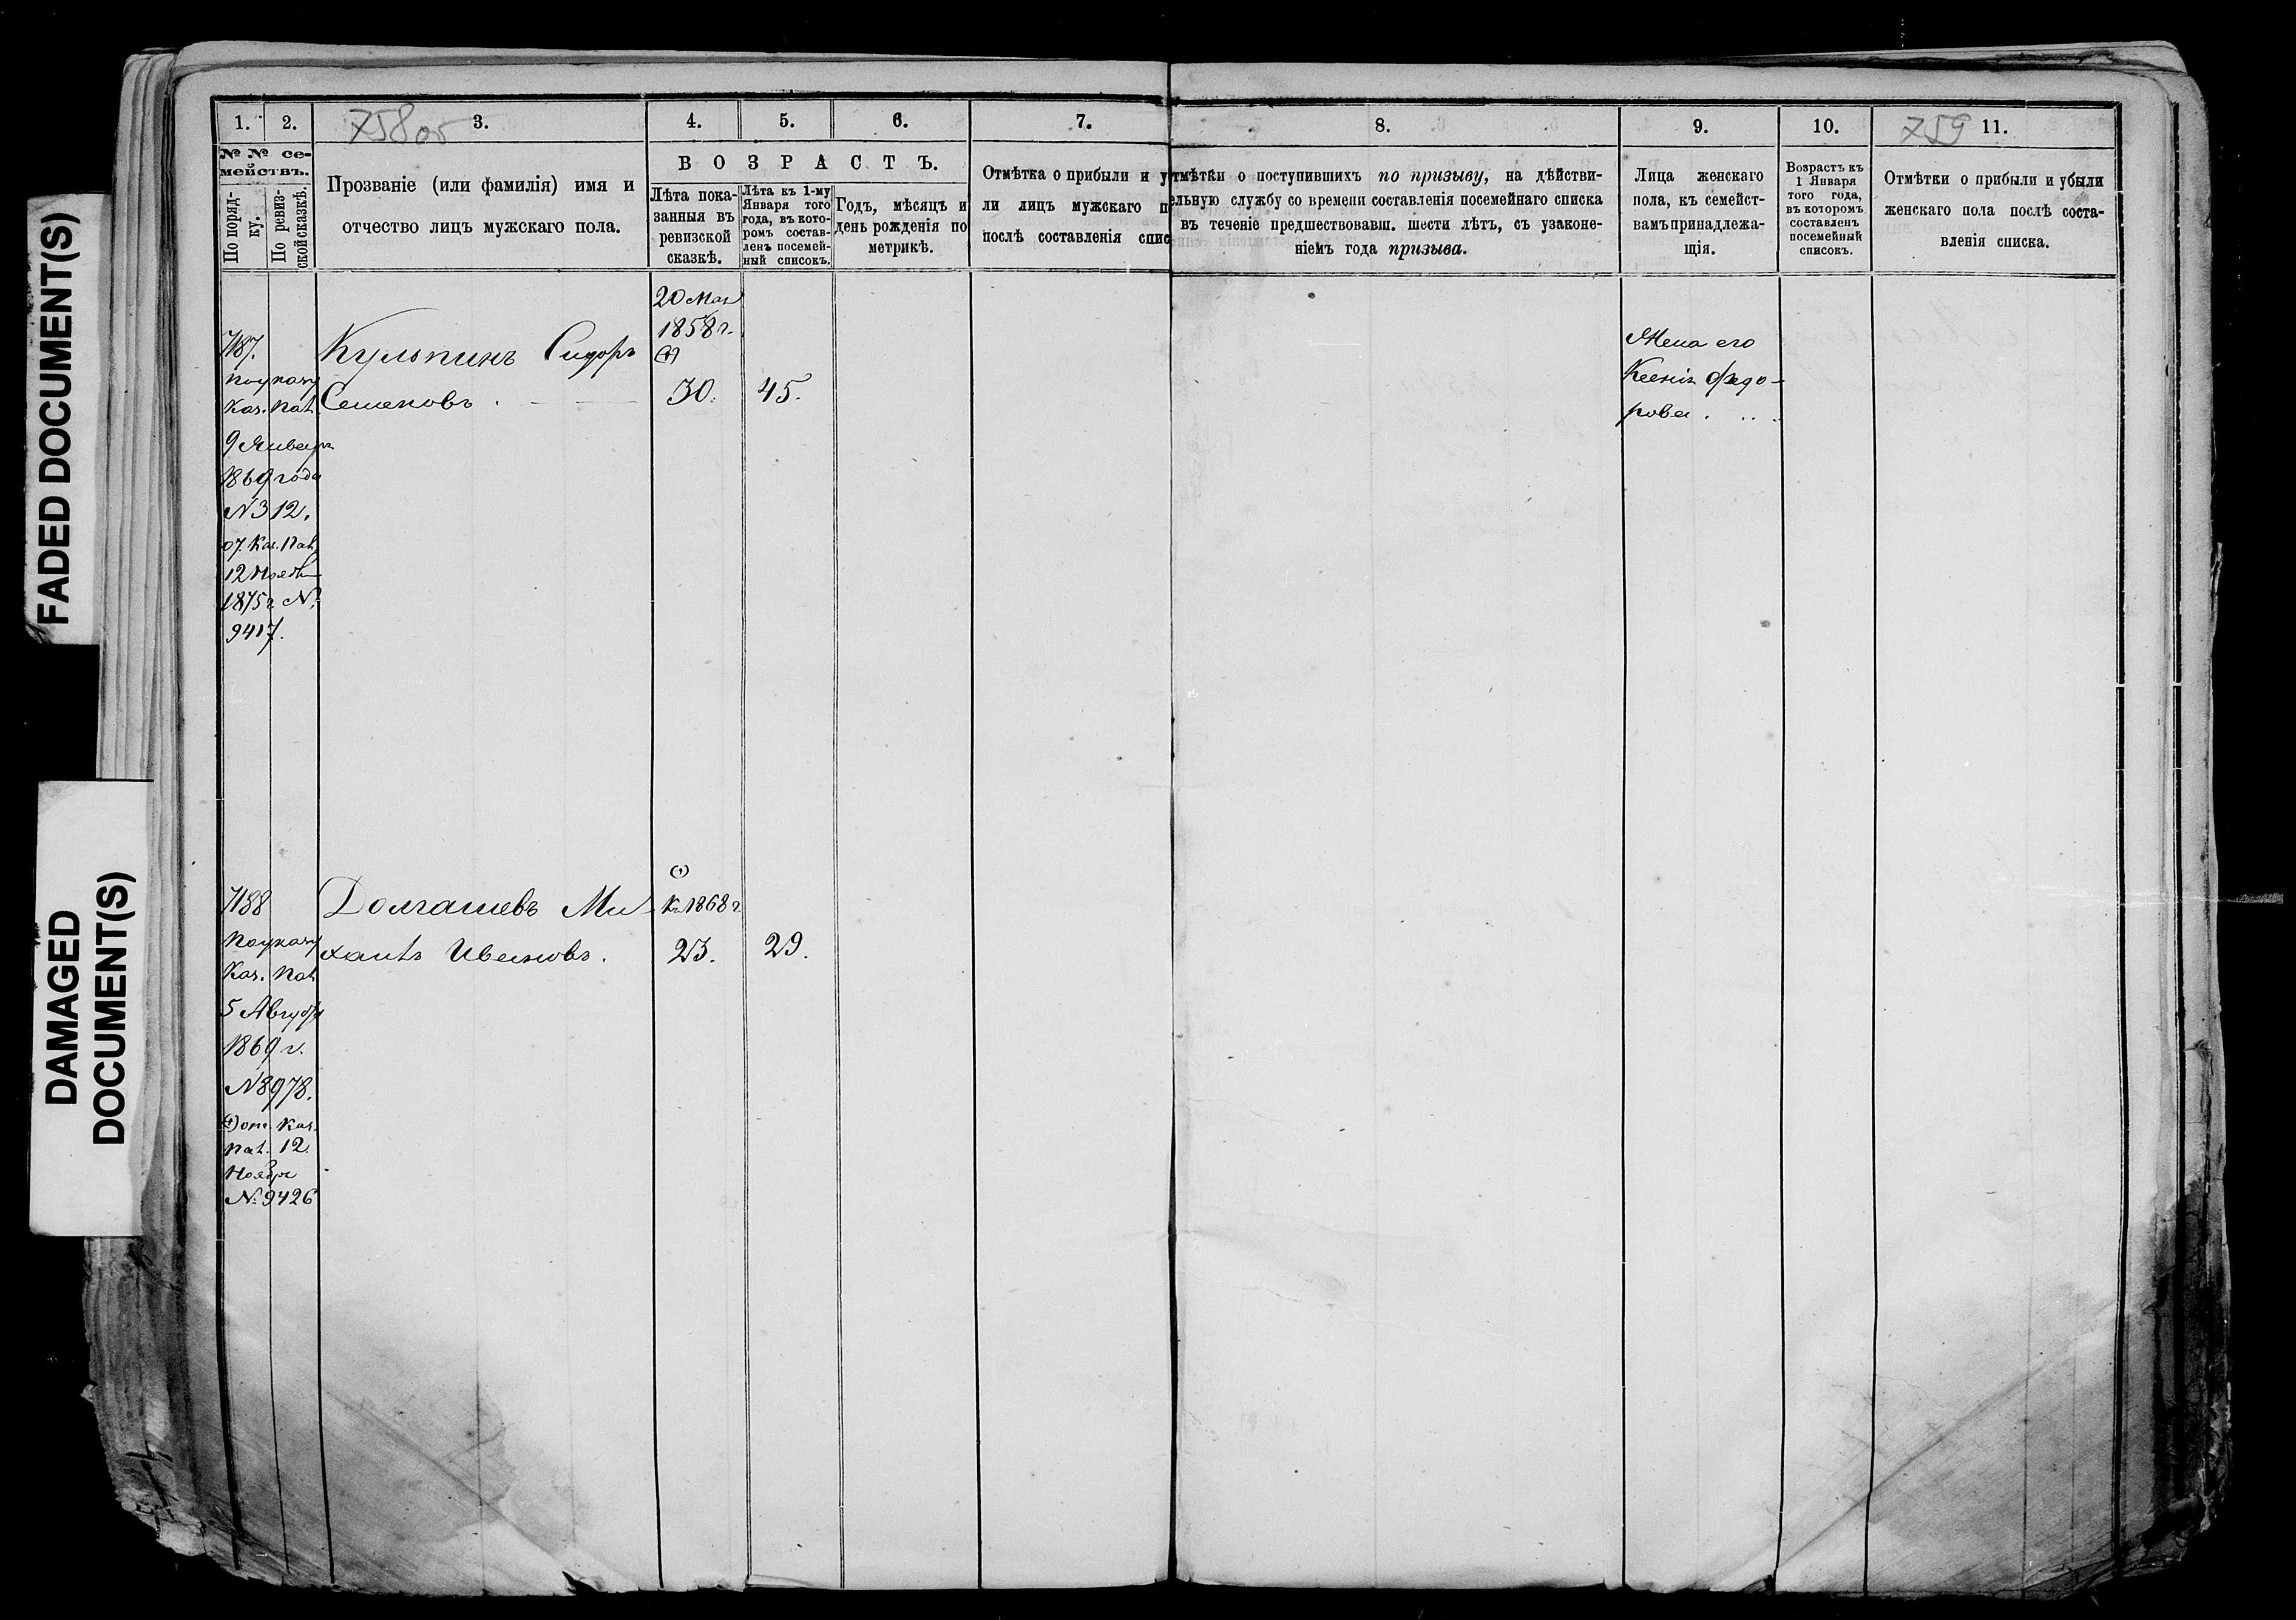 FADED DOCUMENT(S)
DAMAGED
DOCUMENT(S)
758 об
759
1. 2. 3. 4. 5. 6. 7. 8. 9. 10. 11.
№ № се-
мействъ.
По поряд-
ку.
По ревиз-
ской сказкѣ.
Прозваніе (или фамилія) имя и
отчество лицъ мужскаго пола.
ВОЗРАСТЪ.
Лѣта пока-
занныя въ
ревизской
сказкѣ.
Лѣта къ 1-му
Января того
года, въ кото-
ромъ состав-
ленъ посемей-
ный списокъ.
Годъ, мѣсяцъ и
день рожденія по
метрикѣ.
Отмѣтка о прибыли и у
ли лицъ мужскаго п
послѣ составленія спис
тмѣтки о поступившихъ по призыву, на дѣйстви-
ельную службу со времени составленія посемейнаго списка
въ теченіе предшествовавш. шести лѣтъ, съ узаконе-
ніемъ года призыва.
Лица женскаго
пола, къ семейст-
вамъ принадлежа-
щія.
Возрастъ къ
1 Января
того года,
въ которомъ
составленъ
посемейный
списокъ.
Отмѣтки о прибыли и убыли
женскаго пола послѣ соста-
вленія списка.
7187.
по указу
Каз. Пал.
9 Января
1869 года
№ 312.
Каз. Пал.
12 Ноябр
1875 г. №
9417.
Кульпинъ Сидоръ
Семеновъ.
20 Мая
1858 г.
(+)
30.
45.
Жена его
Ксенія Федо-
рова
7188
по указу
Каз. Пал
5 Августа
1869 г.
№ 8978.
(+) Каз.
Пал. 12
Ноября
№ 9426
Долгашевъ Ми-
хаилъ Ивановъ.
(+)
къ 1868 г
23.
29.